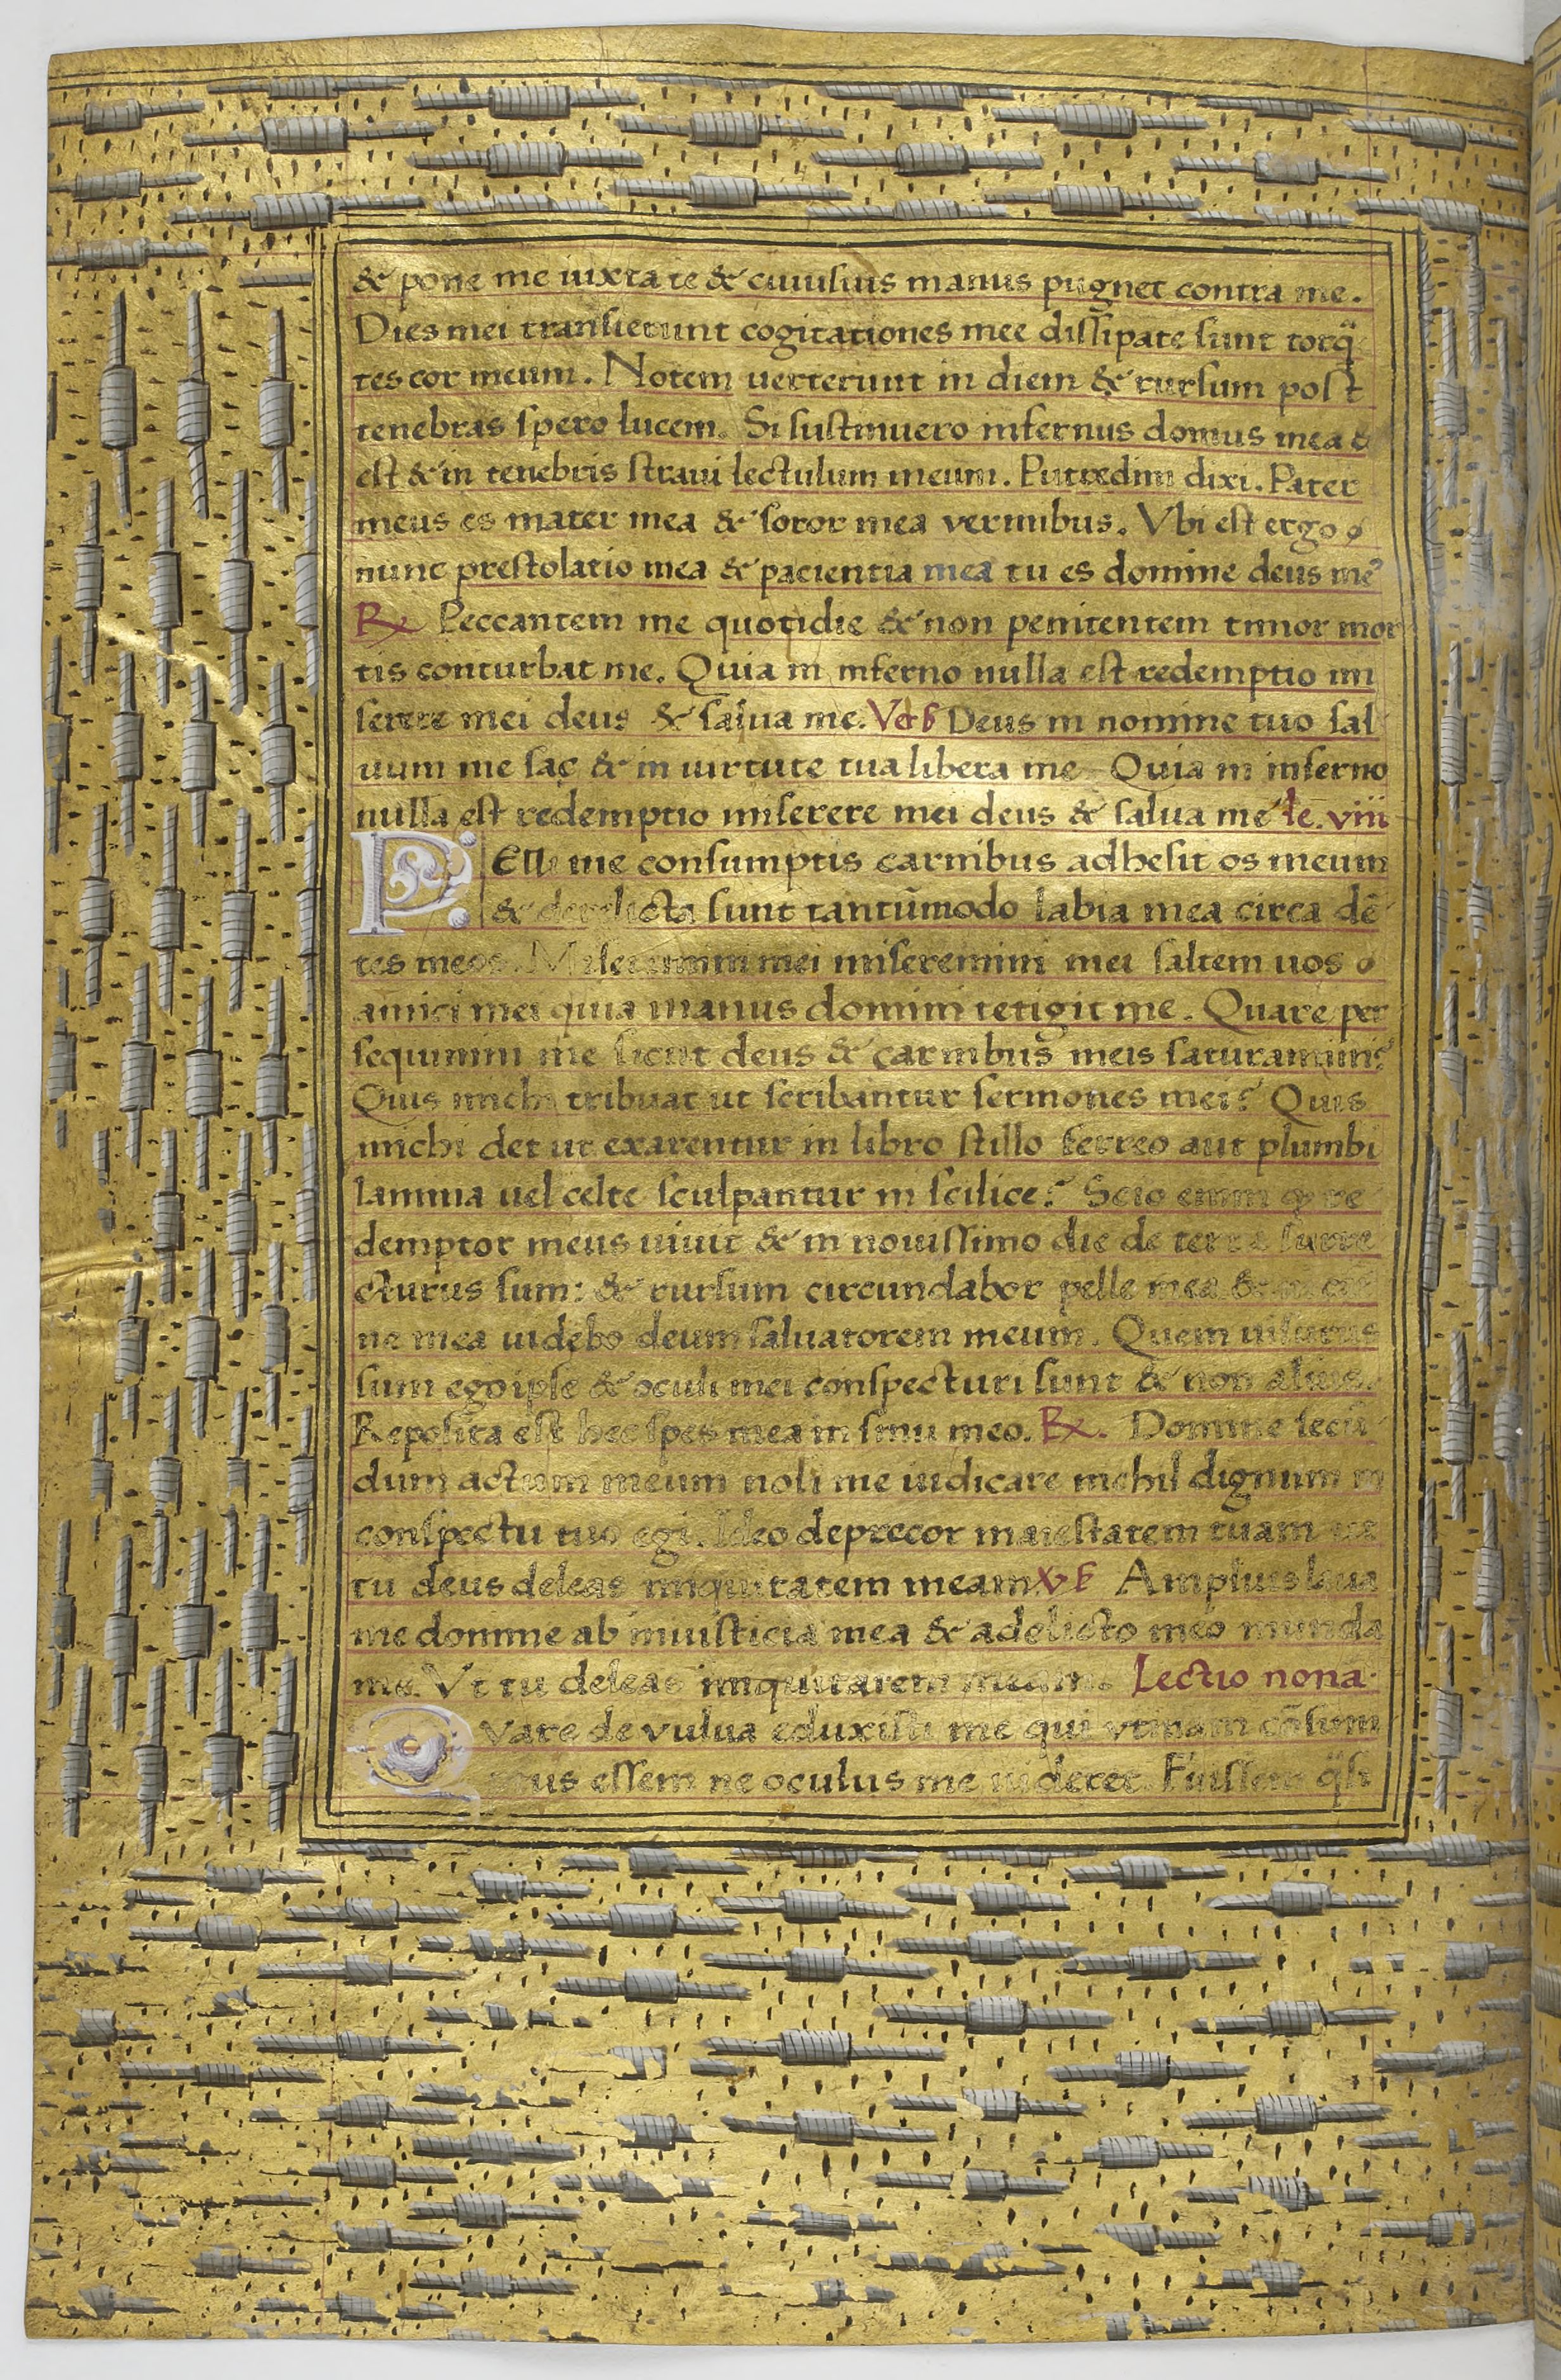 & pone me iuxta te & cuiusuis manus pugnet contra me.
Dies mei transierunt cogitationes mee dissipate sunt torq̃
tes cor meum. Notem uerterunt in diem & rursum post
tenebras spero lucem. Si sustinuero infernus domus mea
est & in tenebris straui lectulum meum. Putredini dixi. Pater
meus es mater mea & soror mea vermibus. Vbi est ergo
nunc prestolatio mea & pacientia mea tu es domine deus me᾽
R⁊ Peccantem me quotidie & non penitentem timor mor
tis conturbat me. Quia in inferno nulla est redemptio mi
serere mei deus & salua me. Verß Deus in nomine tuo sal
uum me fac & in uirtute tua libera me Quia in inferno
nulla est redemptio miserere mei deus & salua me le. viii
PElli me consumptis carnibus adhesit os meum
& derelicta sunt tantũmodo labia mea circa dē
tes meos. Miseremini mei miseremini mei saltem uos
amici mei quia manus domini tetigit me. Quare per
sequimini me sicut deus & carnibus meis saturamini?
Quis michi tribuat ut scribantur sermones mei? Quis
michi det ut exarentur in libro stillo ferreo aut plumbi
lamina uel celte sculpantur in scilice? Scio enim ꝙ re
demptor meus uiuit & in nouissimo die de terra surre
cturus sum: & rursum circundabor pelle mea & in car
ne mea uidebo deum saluatorem meum. Quem uisurus
sum ego ipse & oculi mei conspecturi sunt & non alius.
Reposita est hec spes mea in sinu meo. R⁊. Domine secū
dum actum meum noli me iudicare nichil dignum in
conspectu tuo egi. Ideo deprecor maiestatem tuam ut
tu deus deleas iniquitatem meam vß Amplius laua
me domine ab iniusticia mea & a delicto meo munda
me. Vt tu deleas iniquitatem meam. Lectio nona.
Quare de vulua eduxisti me qui vtinam cōsum
ptus essem ne oculus me uideret. Fuissem q̃si